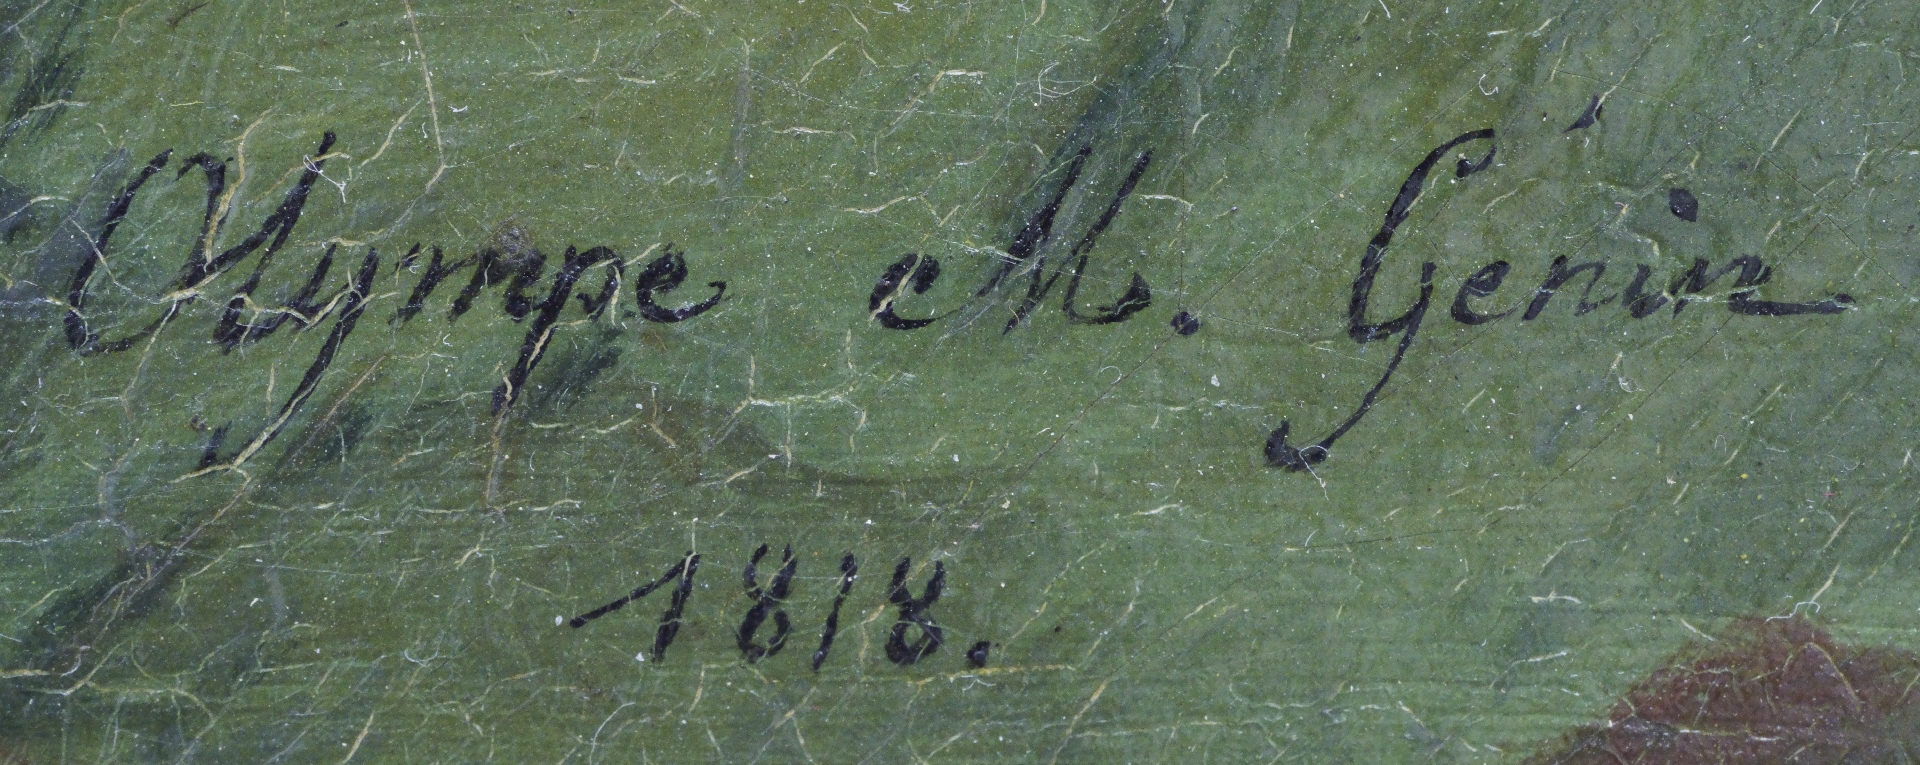 Olympe M. Génin
1818.